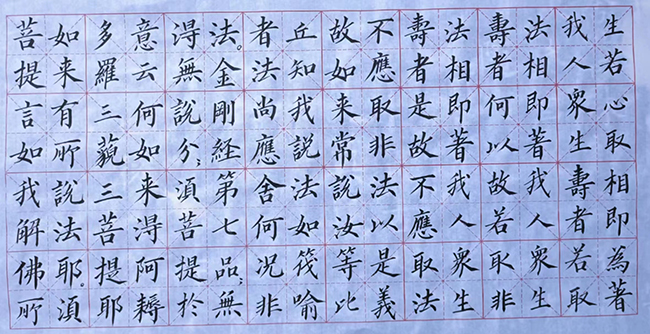 生若心取相即為著
我人衆生壽者若取
法相即著我人衆生
壽者何以故若取非
法相即著我人衆生
壽者是故不應取法
不應取非法以是義
故如来常說汝等比
丘知我說法如筏喻
者法尚應舍何況非
法。金剛経第七品;無
淂無說分;湏菩提於
意云何如来淂阿耨
多羅三藐三菩提耶
如来有所說法耶。湏
菩提言如我解佛所